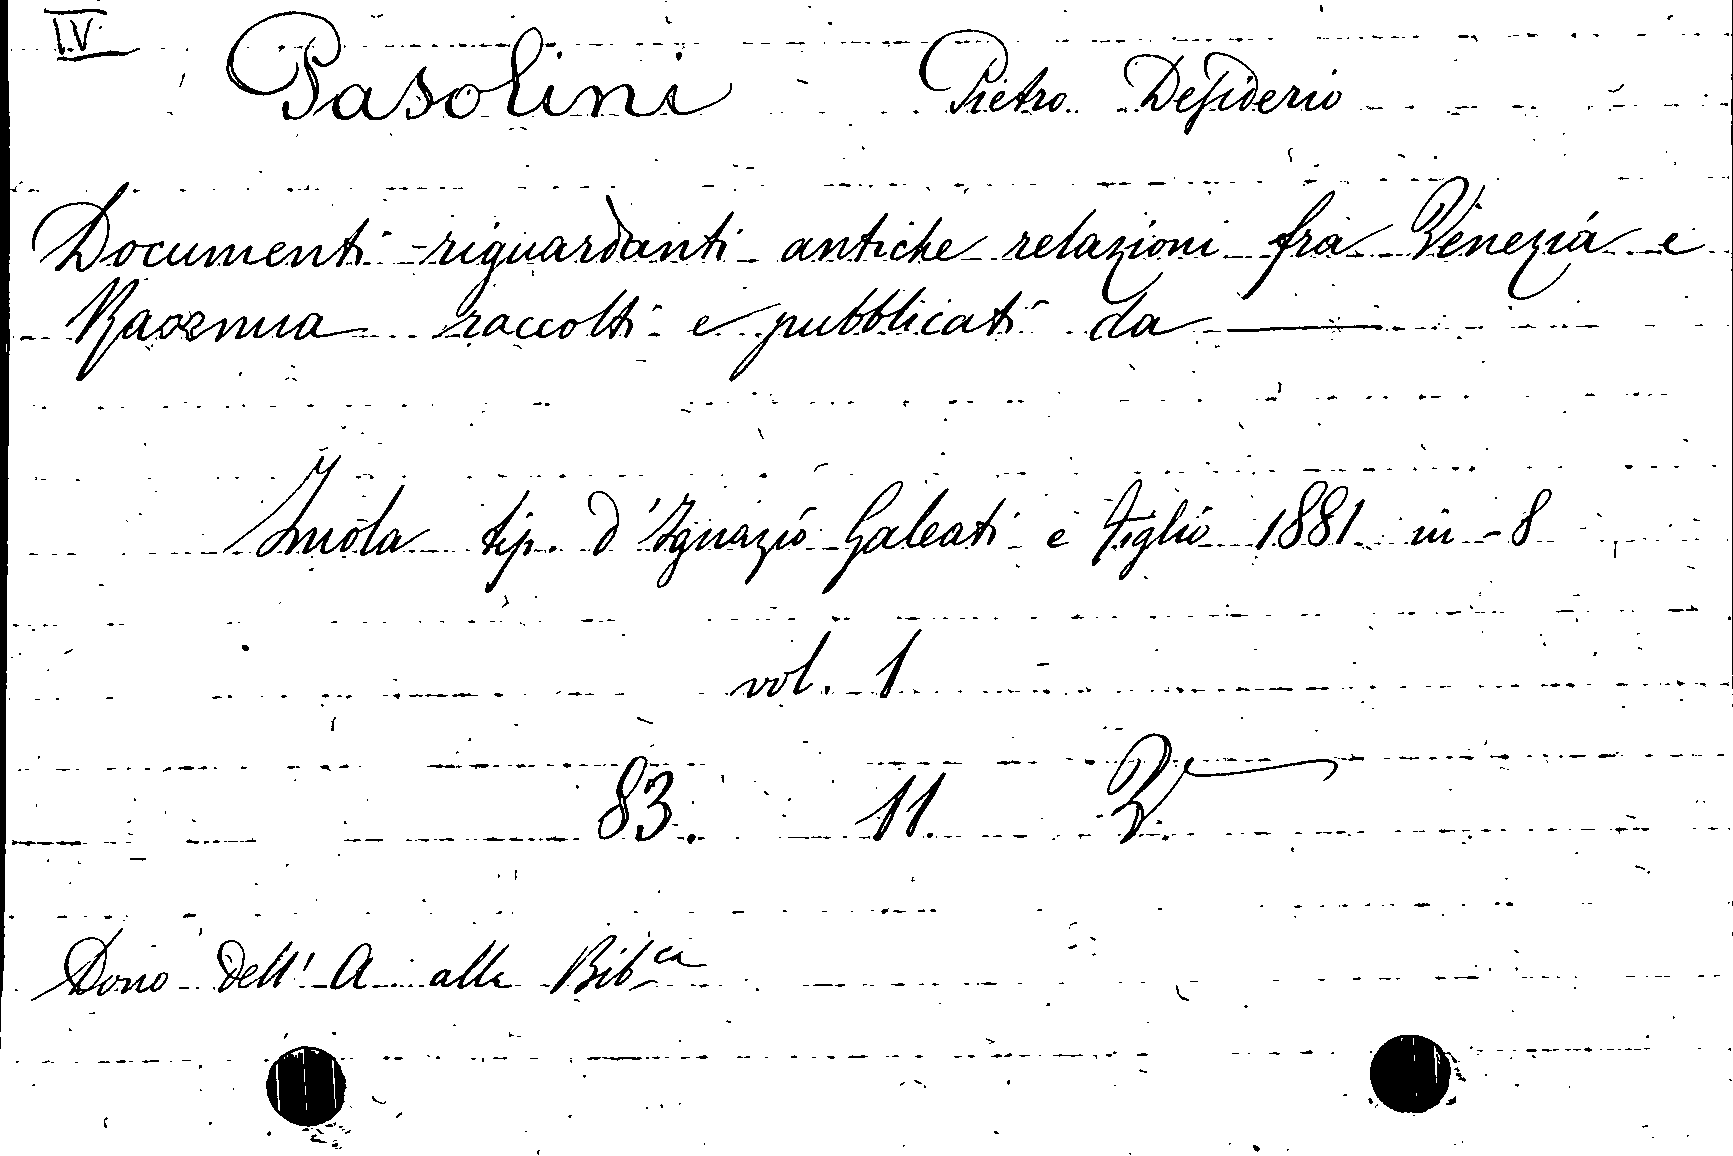 I.V.
Pasolini Pietro Desiderio
Documenti riguardanti antiche relazioni fra Venezia e
Ravenna raccolti e pubblicati da ———
Imola tip. d'Ignazio Galeati e figlio 1881 in-8
vol. 1
83. 11.
Dono dell'A alla Bibca